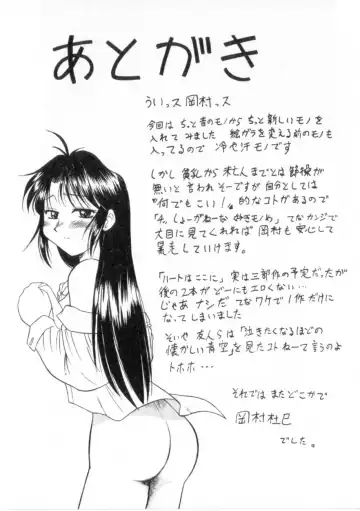 あとがき
ういっス 岡村っス
今回は ちっと昔のモノから ちっと新しいモノを
入れてみました 絵ガラを変える前のモノも
入ってるので 冷や汗モノです
しかし 貧乳から 未亡人までとは 節操が
無いと 言われそーですが 自分としては
"何でもこい!" 的なコトがあるので
「チ、しょーがねーな みきモノめ」 てなカンジで
大目に見てくれれば 岡村も安心して
暴走していけます。
「ルートはここに」 実は三部作の予定だったが
後の2本が どーにもエロくない…
じゃあ ナシだ てなワケで 1作だけに
なってしまいました
そいや 友人らは 「泣きたくなるほどの
懐かしい青空」を見たコトねーて言うのよ
トホホ…
それでは またどこかで
岡村杜巳
でした。